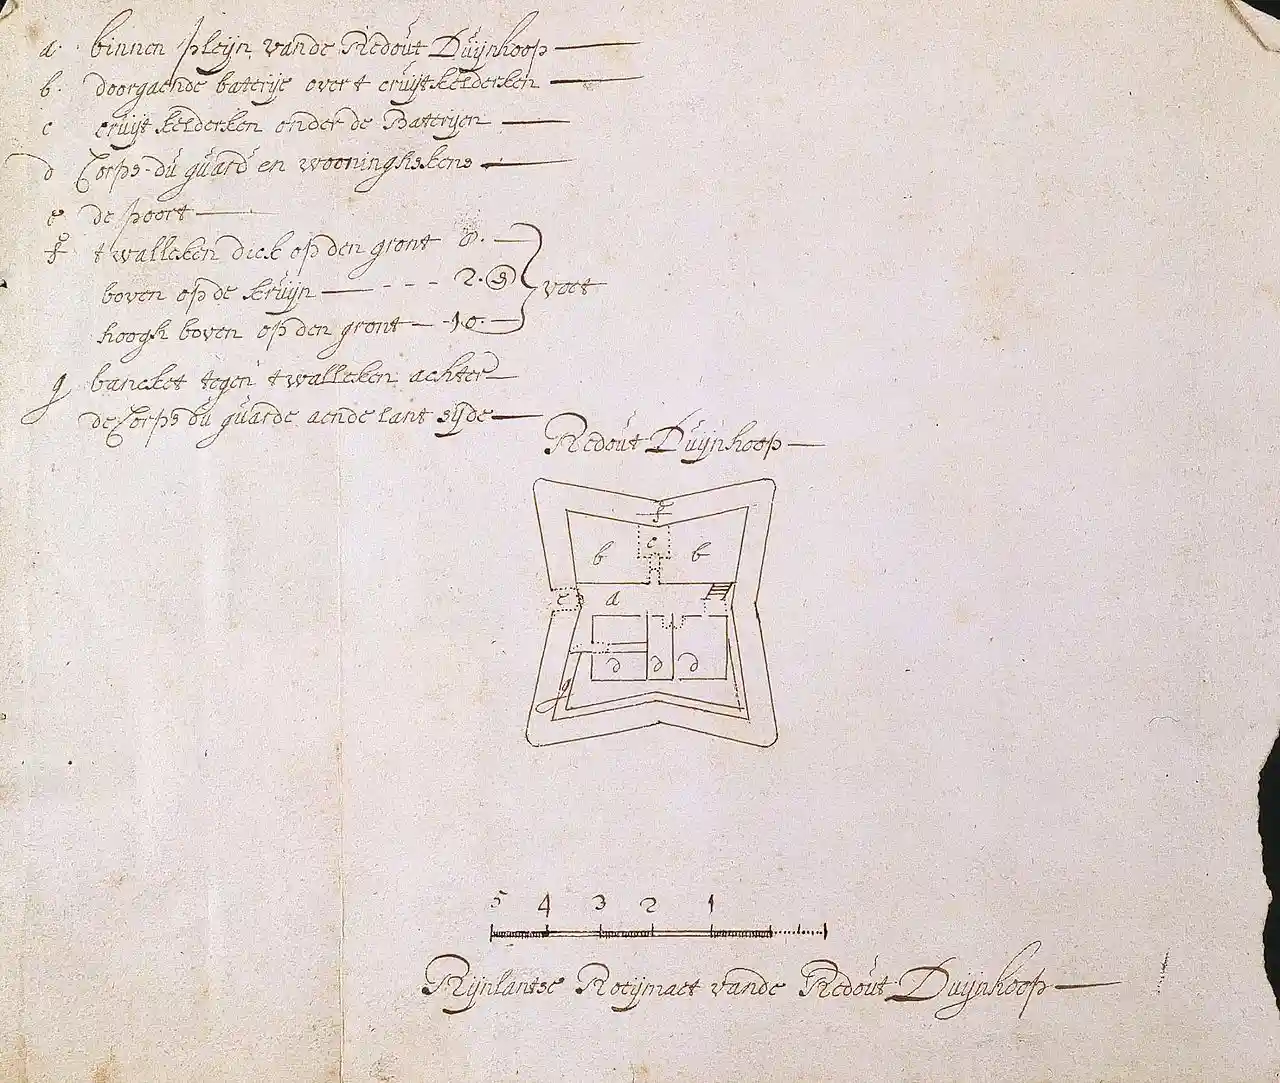 a. binnen pleijn vande Redout Duijnhoop
b. doorgaende baterije over t cruijtkelderken
c cruijt kelderken onder de Baterijen
d Corps-du guard en wooninghskens
e de poort
f t walleken dick op den gront 8.
boven op de kruijn - - - 2. voet
hoogh boven op den gront 10.
g bancket tegen t walleken achter
de Corps du guarde aende lant sijde
Redout Duijnhoop
f
c
b b
e a
d d d
g
5 4 3 2 1
Rijnlantse Roeijmaet vande Redout Duijnhoop